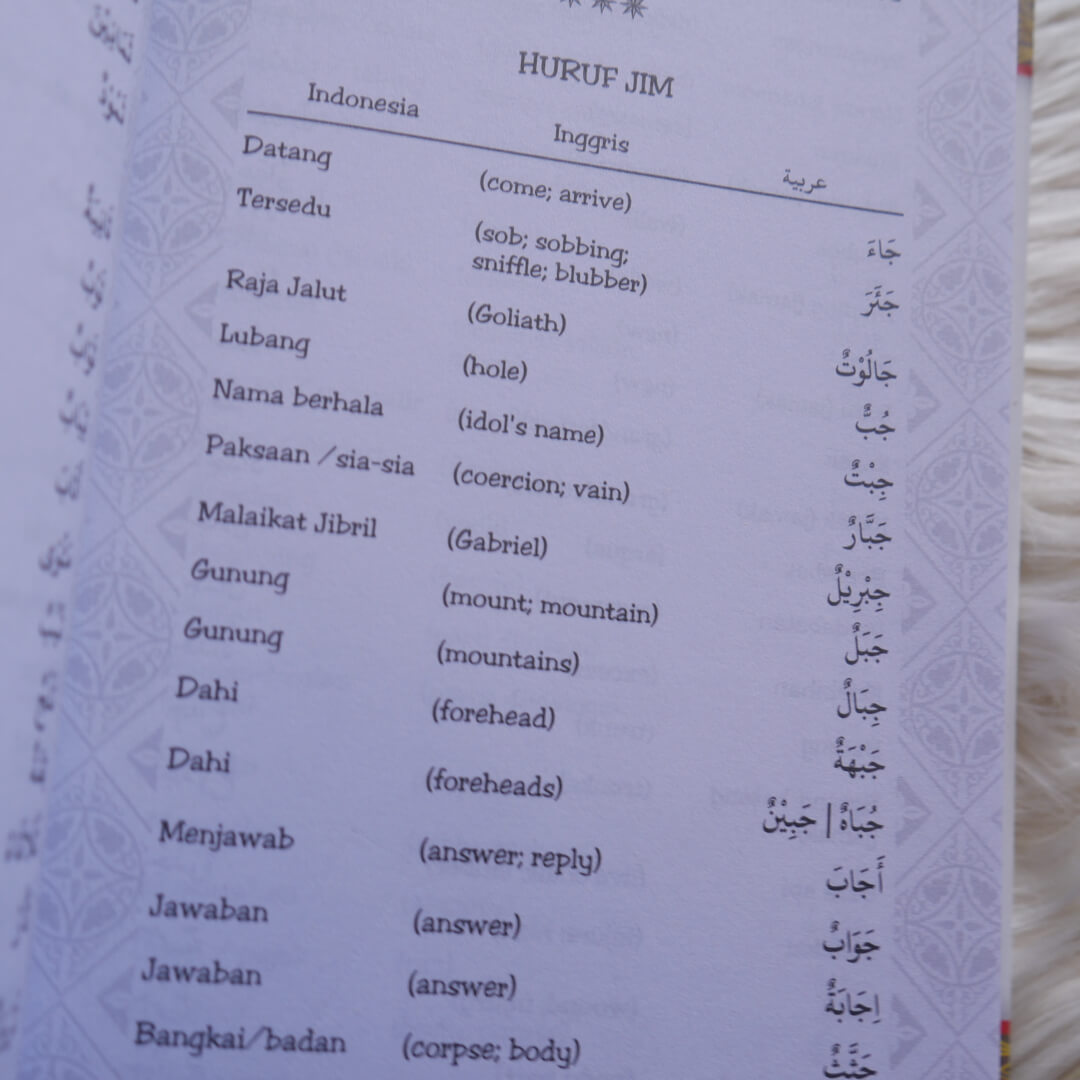 HURUF JIM
Indonesia Inggris عربية
Datang (come; arrive) جَاءَ
Tersedu (sob; sobbing;
sniffle; blubber) جَئَرَ
Raja Jalut (Goliath) جَالُوْتٌ
Lubang (hole) جُبٌّ
Nama berhala (idol's name) جِبْتٌ
Paksaan /sia-sia (coercion; vain) جَبَّارٌ
Malaikat Jibril (Gabriel) جِبْرِيْلٌ
Gunung (mount; mountain) جَبَلٌ
Gunung (mountains) جِبَالٌ
Dahi (forehead) جَبْهَةٌ
Dahi (foreheads) جُبَاهٌ | جَبِيْنٌ
Menjawab (answer; reply) أَجَابَ
Jawaban (answer) جَوَابٌ
Jawaban (answer) اِجَابَةٌ
Bangkai/badan (corpse; body)